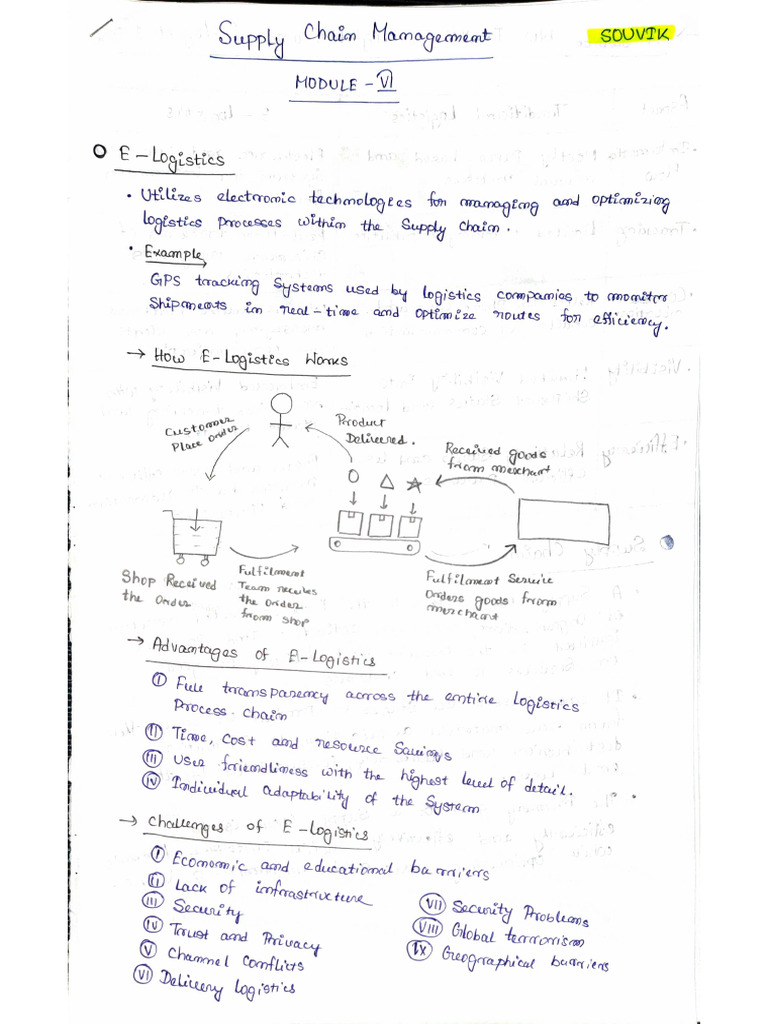 Supply Chain Management
SOUVIK
MODULE - VI
E-Logistics
• Utilizes electronic technologies for managing and optimizing
logistics processes within the Supply Chain.
• Example
GPS tracking Systems used by logistics companies to monitor
Shipments in real-time and optimize routes for efficiency.
→ How E-Logistics Works
Customer
Place Order
Product
Delivered.
Received goods
from merchant
Shop Received
the Order
Fulfilment
Team receives
the Order
from Shop
Fulfilment Service
Orders goods from
merchant
→ Advantages of E-Logistics
I Full transparency across the entire Logistics
Process Chain
II Time, Cost and resource Savings
III User friendliness with the highest level of detail.
IV Individual adaptability of the System
→ Challenges of E-Logistics
I Economic and educational barriers
II Lack of infrastructure
III Security
IV Trust and Privacy
V Channel Conflicts
VI Delivery Logistics
VII Security Problems
VIII Global terrorism
IX Geographical barriers